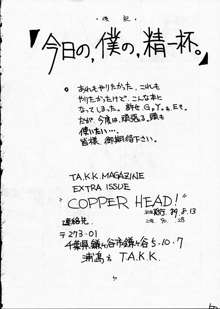 後記
『今日の、僕の、精一杯。』
あれもやりたかった、これも
やりたかったけど、こんな本に
なってしまった。
だが、今度は、頑張る、頭も
使いたい…。
皆様、御期待下さい。
T.A.K.K. MAGAZINE
EXTRA ISSUE
"COPPER HEAD!"
発行. '89. 8. 13
連絡先
〒273-01
千葉県鎌ヶ谷市鎌ヶ谷5.10.7
T.A.K.K.